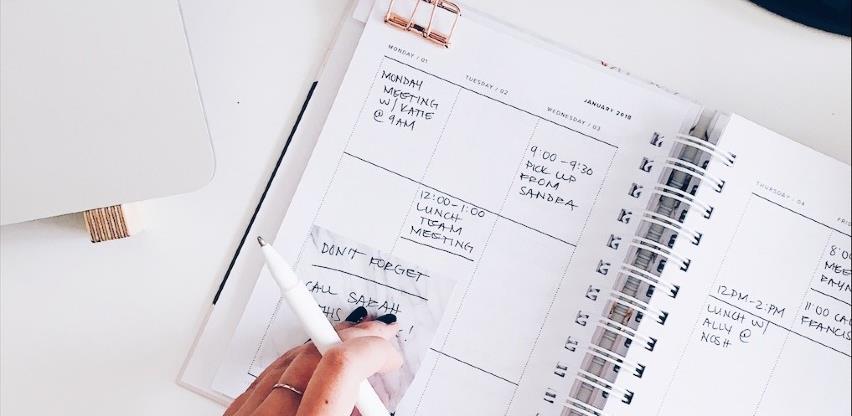 MONDAY / 01
MONDAY
MEETING
W/ KATIE
@ 9AM
TUESDAY / 02
12:00-1:00
LUNCH
TEAM
MEETING
JANUARY 2018
WEDNESDAY / 03
9:00-9:30
PICK UP
FROM
SANDRA
DON'T FORGET
CALL SARAH
THIS
THURSDAY / 04
12PM-2PM
LUNCH W/
ALLY @
NOSH
11:00